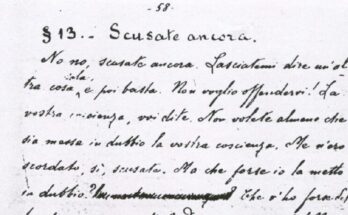 - 58 -
§ 13.- Scusate ancora.
No no, scusate ancora. Lasciatemi dire un'al-
tra cosa sola, e poi basta. Non voglio offendervi! La
vostra coscienza, voi dite. Non volete almeno che
sia messa in dubbio la vostra coscienza. Me n'ero
scordato, sì, scusate. Ma che forse io la metto
in dubbio? Che v'ho forse di